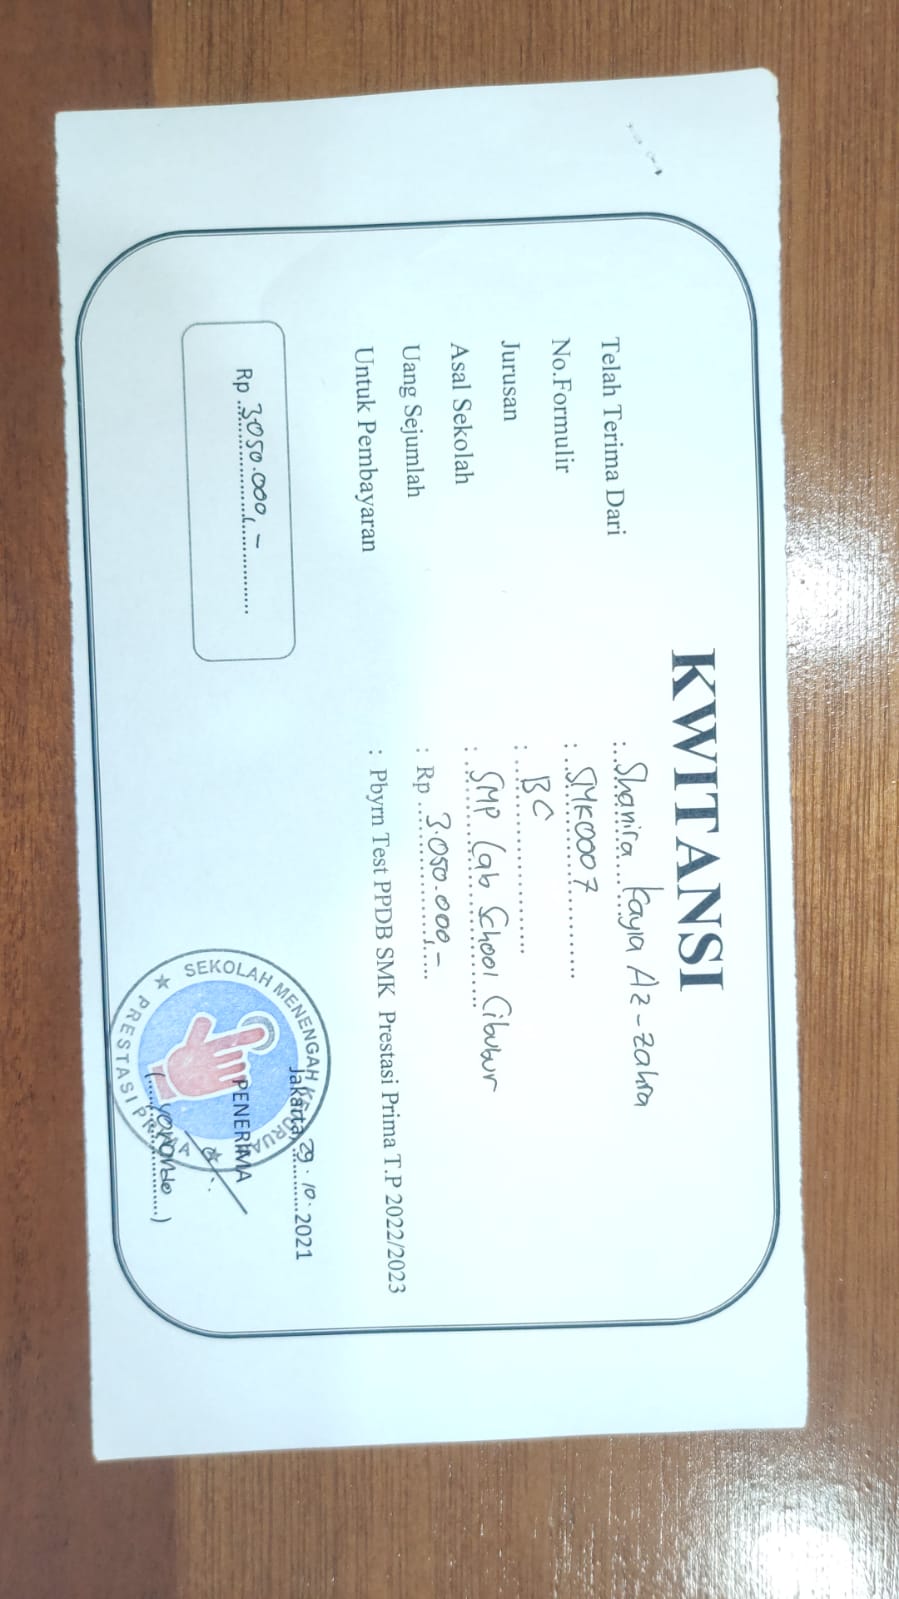 KWITANSI
Telah Terima Dari : Shanira Kayla Az-zahra
No.Formulir : SMK0007
Jurusan : BC
Asal Sekolah : SMP Lab School Cibubur
Uang Sejumlah : Rp 3.050.000,-
Untuk Pembayaran : Pbyrn Test PPDB SMK Prestasi Prima T.P 2022/2023
Rp 3.050.000,-
Jakarta, 29.10.2021
PENERIMA
SEKOLAH MENENGAH KEJURUAN
PRESTASI PRIMA